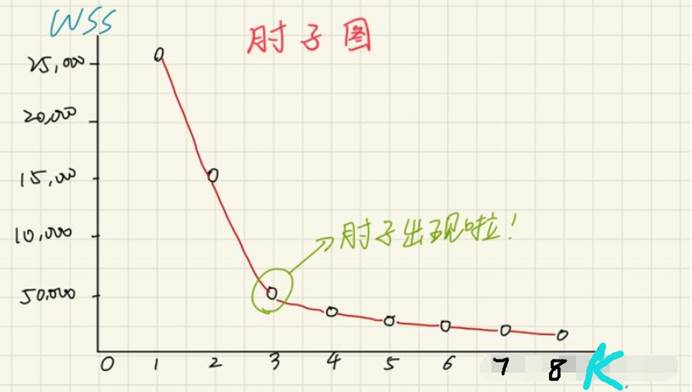 WSS
肘子图
25,000
20,000
15,00
10,000
50,000
肘子出现啦!
0 1 2 3 4 5 6 7 8 K